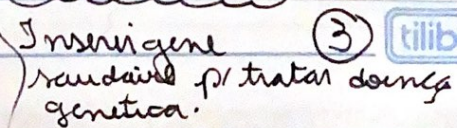 Inserir gene ③ tilib
saudável p/ tratar doença
genética.